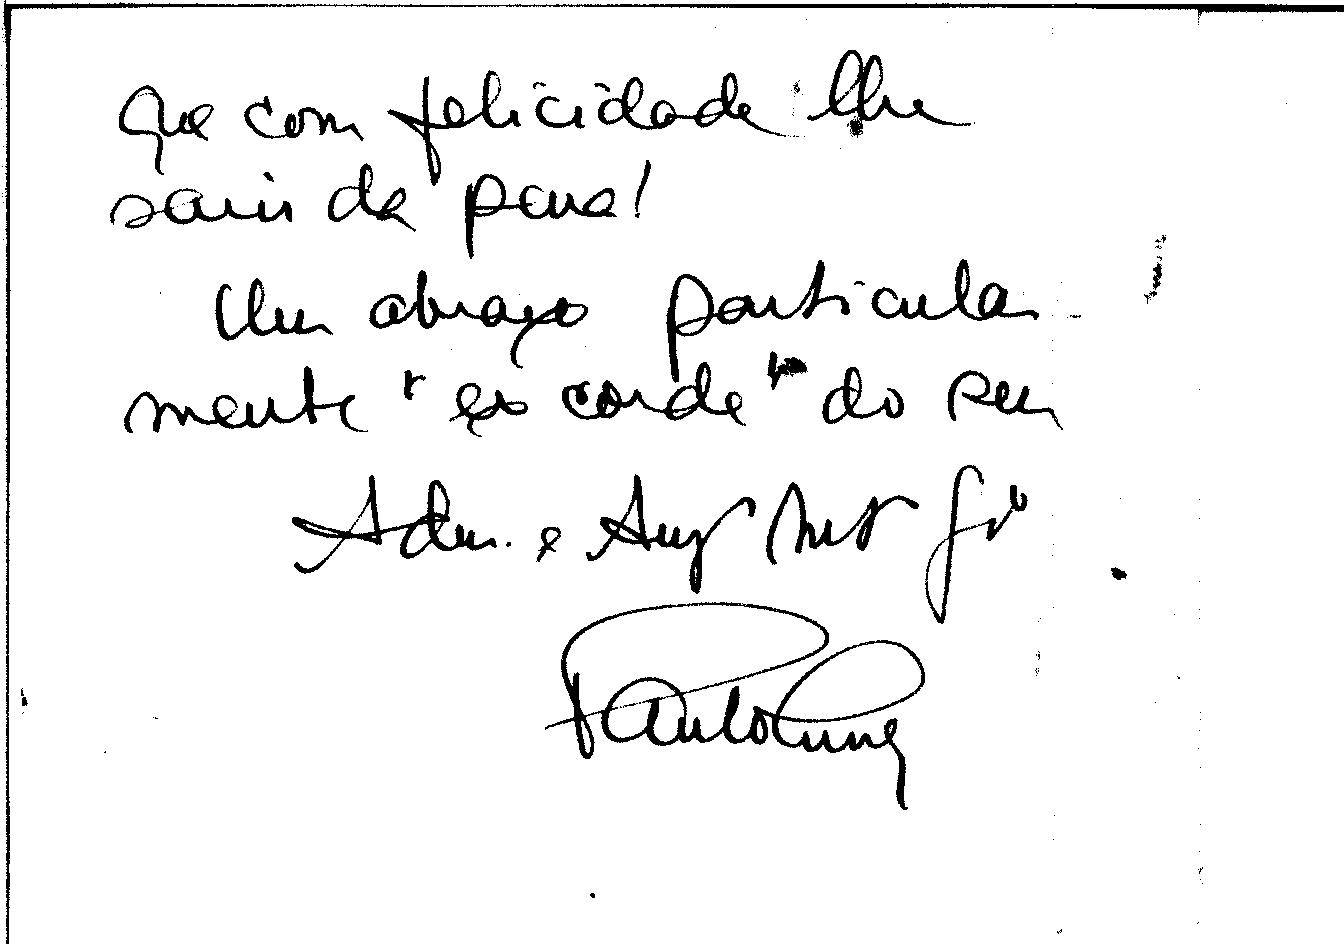 que com felicidade lhe
saiu da pena!
Um abraço particular
mente "ex corde" do seu
Adm. e Am.º
Paulo